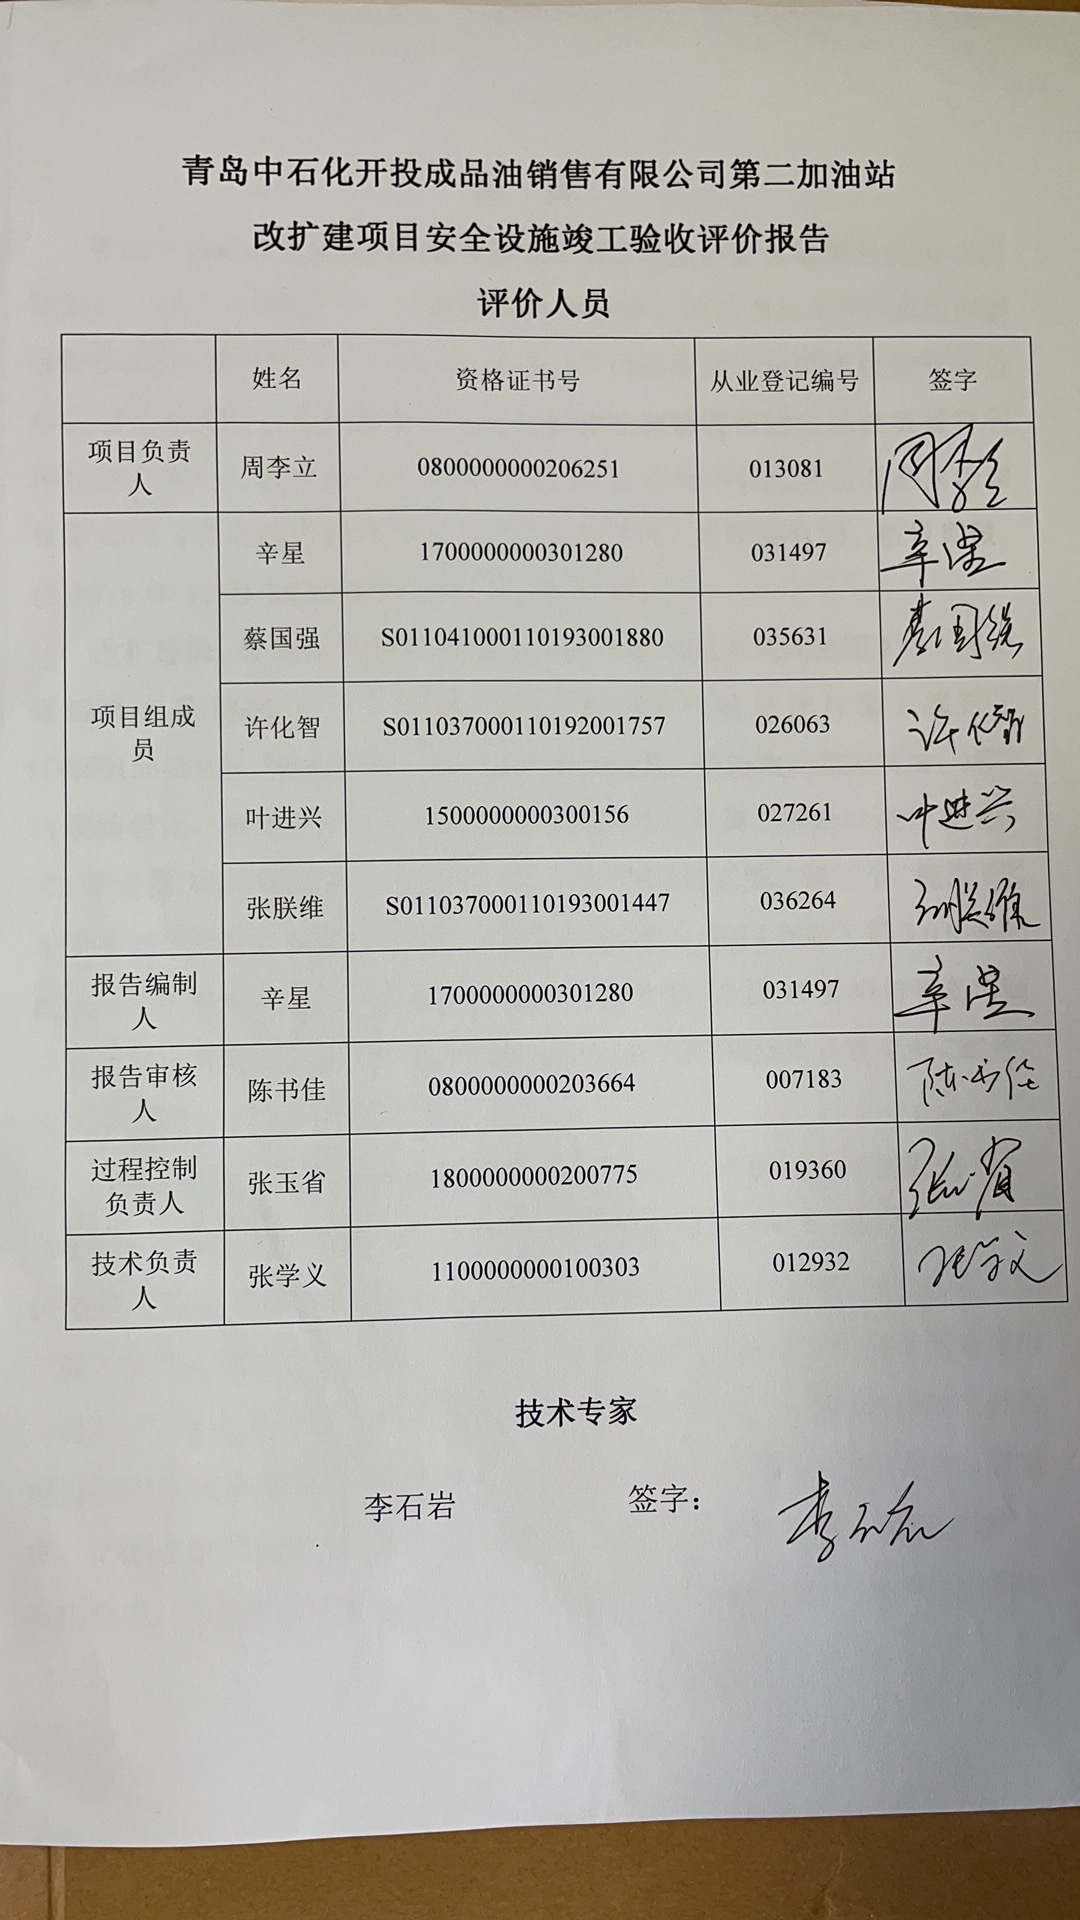 青岛中石化开投成品油销售有限公司第二加油站
改扩建项目安全设施竣工验收评价报告
评价人员
姓名 资格证书号 从业登记编号 签字
项目负责人 周李立 0800000000206251 013081
项目组成员 辛星 1700000000301280 031497 辛星
蔡国强 S011041000110193001880 035631 蔡国强
许化智 S011037000110192001757 026063 许化智
叶进兴 1500000000300156 027261 叶进兴
张朕维 S011037000110193001447 036264 张朕维
报告编制人 辛星 1700000000301280 031497 辛星
报告审核人 陈书佳 0800000000203664 007183 陈书佳
过程控制负责人 张玉省 1800000000200775 019360 张玉省
技术负责人 张学义 1100000000100303 012932 张学义
技术专家
李石岩 签字： 李石岩